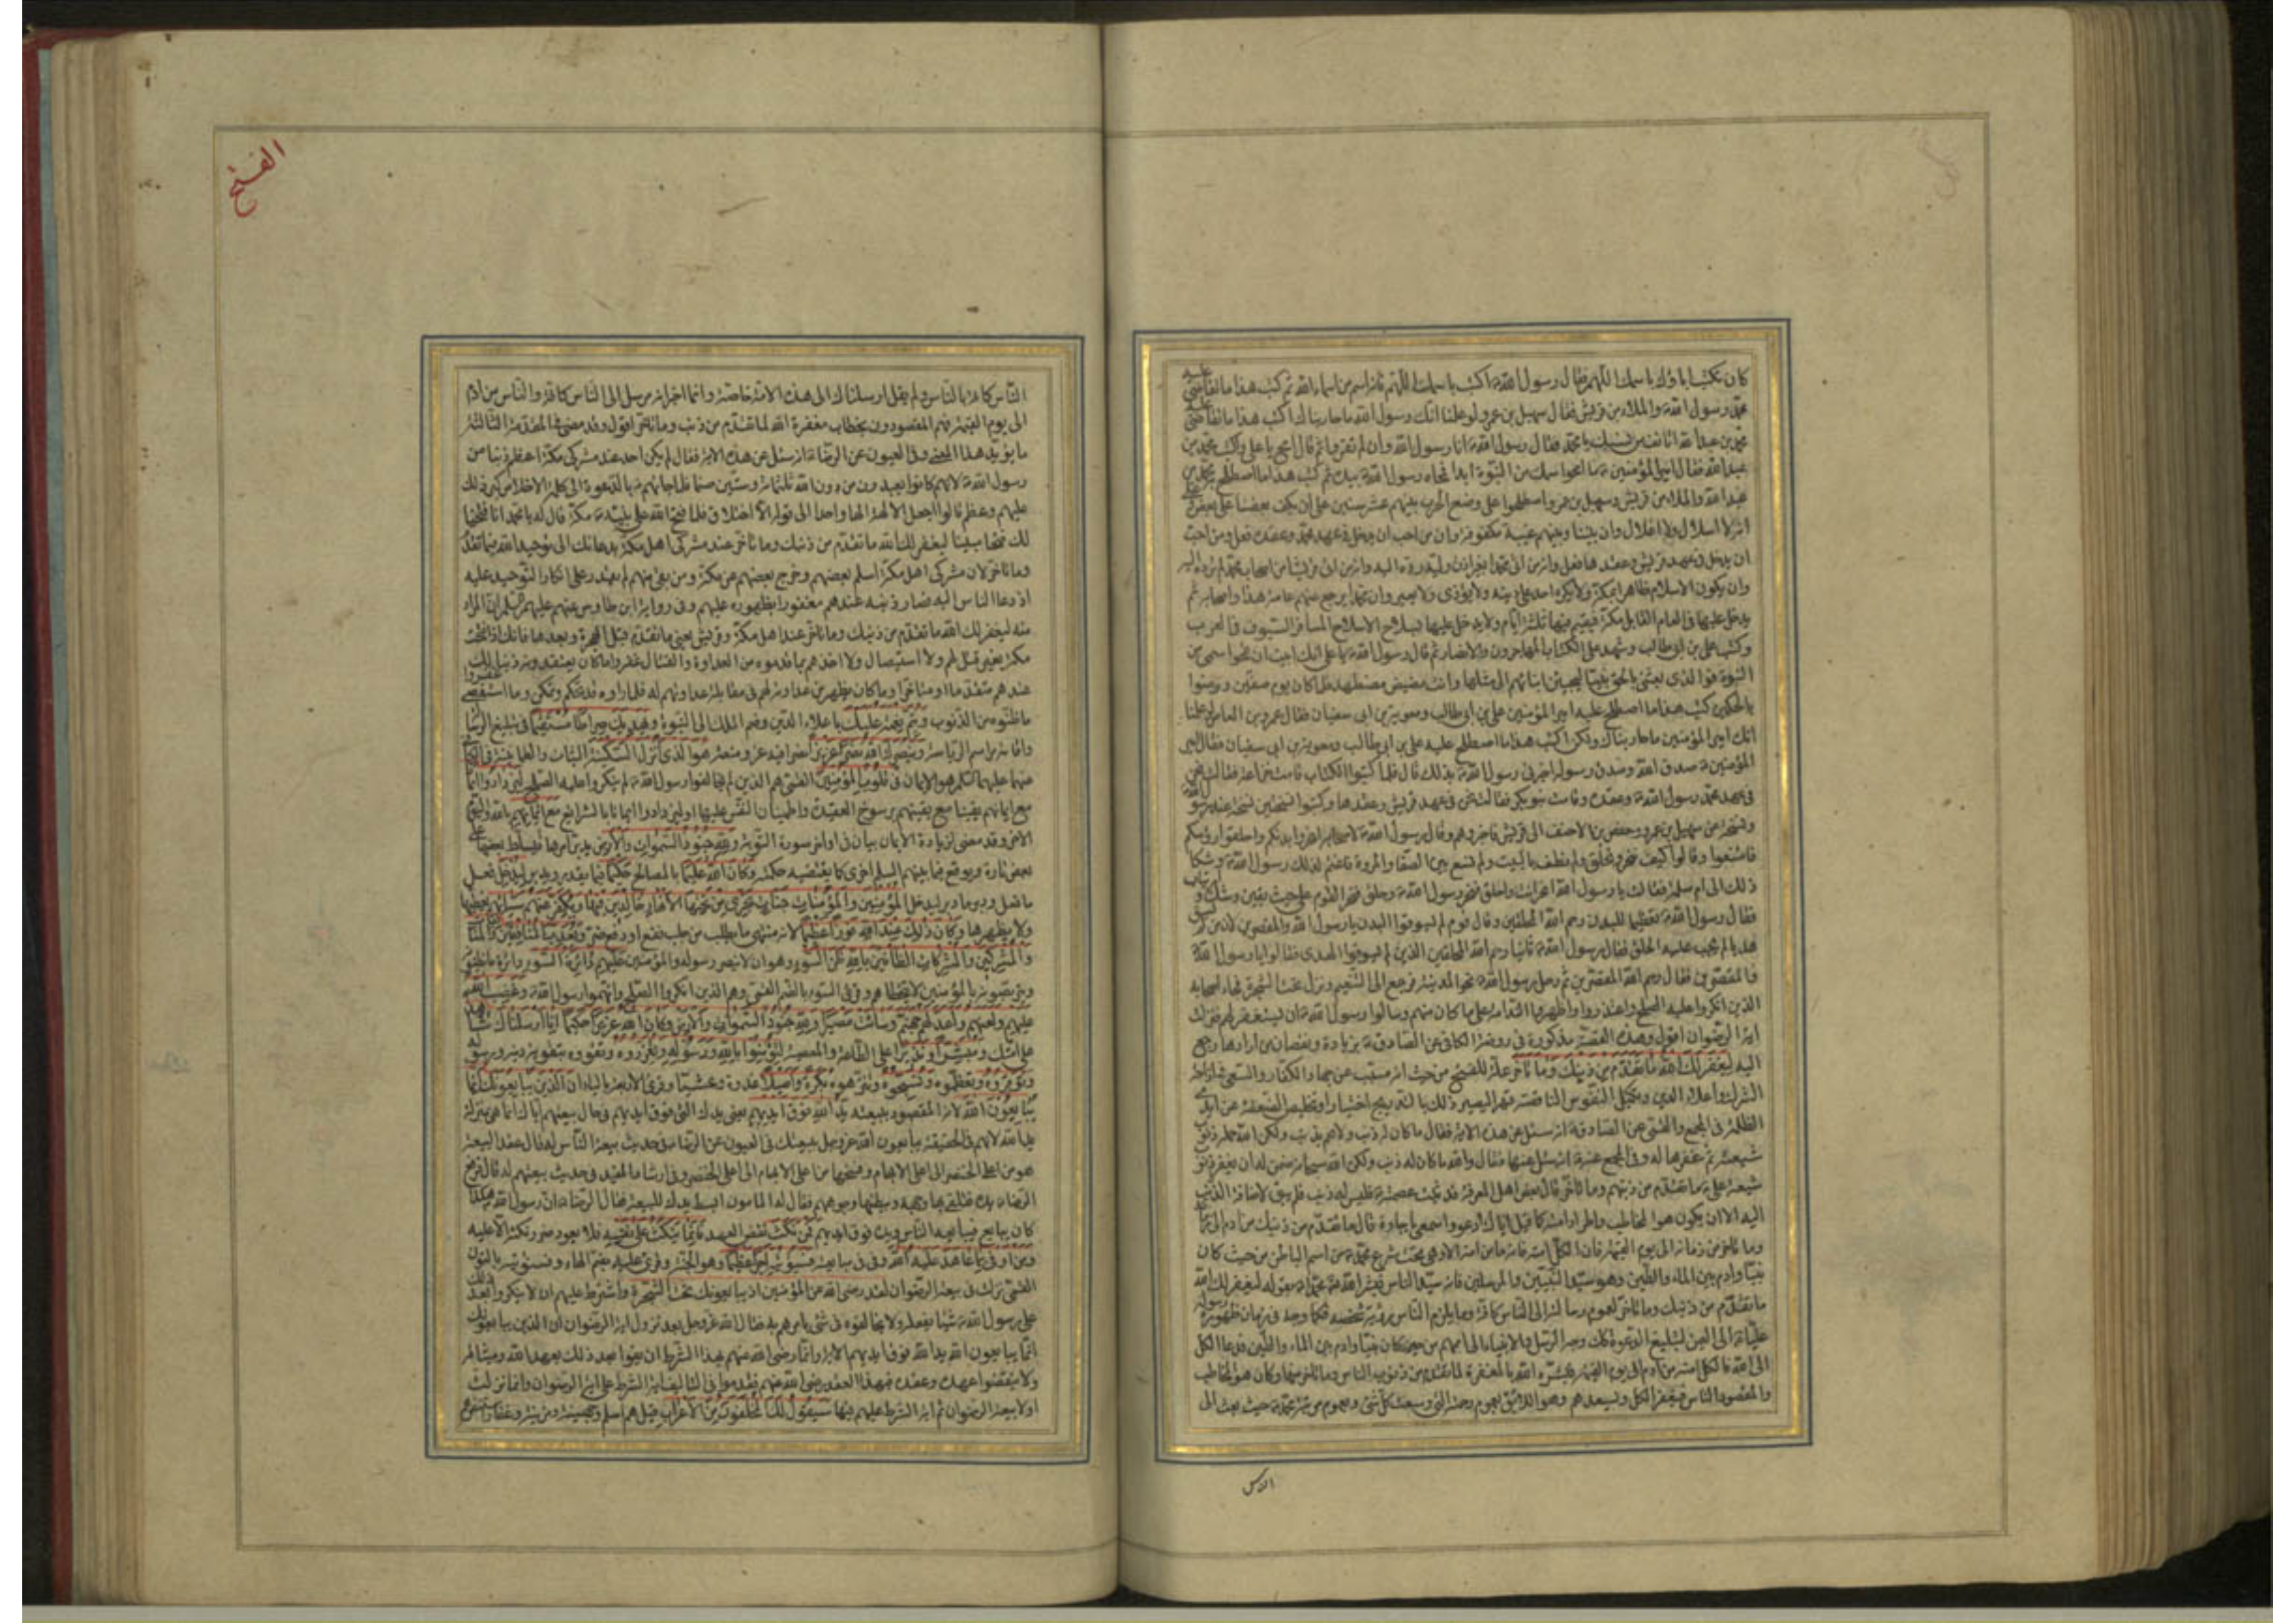 كان يكتب اباؤك باسمك اللهم فقال رسول الله ص اكتب باسمك اللهم فانه اسم من اسماء الله ثم كتب هذا ما تقاضى عليه
محمد رسول الله ص والملاء من قريش فقال سهيل بن عمرو لو علمنا انك رسول الله ما حاربناك اكتب هذا ما تقاضى عليه
محمد بن عبد الله اتانف من نسبك يا محمد فقال رسول الله ص انا رسول الله وان لم تقروا ثم قال امح يا علي واكتب محمد بن
عبد الله فقال امير المؤمنين ع ما امحو اسمك من النبوة ابدا فمحاه رسول الله ص بيده ثم كتب هذا ما اصطلح محمد بن
عبد الله والملاء من قريش وسهيل بن عمرو واصطلحوا على وضع الحرب بينهم عشر سنين على ان يكف بعضنا على بعض وعلى
انه لا اسلال ولا اغلال وان بيننا وبينهم عيبة مكفوفة وان من احب ان يدخل في عهد محمد وعقده فعل ومن احب
ان يدخل في عهد قريش وعقدها فعل وانه من اتى محمدا بغير اذن وليه رده اليه وانه من اتى قريشا من اصحاب محمد لم يرده اليه
وان يكون الاسلام ظاهرا بمكة ولا يكره احد على دينه ولا يؤذى ولا يعير وان محمدا يرجع عنهم عامه هذا واصحابه ثم
يدخل علينا في العام القابل مكة فيقيم فيها ثلثة ايام ولا يدخل عليها بسلاح الا سلاح المسافر السيوف في القرب
وكتب علي بن ابي طالب وشهد على الكتاب المهاجرون والانصار ثم قال رسول الله ص يا علي انك ابيت ان تمحو اسمي من
النبوة فو الذي بعثني بالحق نبيا لتجيبن ابنائهم الى مثلها وانت مضيض مضطهد فلما كان يوم صفين ورضوا
بالحكمين كتب هذا ما اصطلح عليه امير المؤمنين علي بن ابي طالب ومعوية بن ابي سفيان فقال عمرو بن العاص لو علمنا
انك امير المؤمنين ما حاربناك ولكن اكتب هذا ما اصطلح عليه علي بن ابي طالب ومعوية بن ابي سفيان فقال امير
المؤمنين ع صدق الله وصدق رسوله اخبرني رسول الله ص بذلك قال فلما كتبوا الكتاب قامت خزاعة فقالت نحن
في عهد محمد رسول الله ص وعقده وقامت بنو بكر فقالت نحن في عهد قريش وعقدها وكتبوا نسختين نسخة عند رسول الله
ونسخة عند سهيل بن عمرو وحفص بن الاحنف الى قريش فاخبروهم وقال رسول الله ص لاصحابه انحروا بدنكم واحلقوا رؤسكم
فامتنعوا وقالوا كيف ننحر ونحلق ولم نطف بالبيت ولم نسع بين الصفا والمروة فاغتم لذلك رسول الله ص وشكا
ذلك الى ام سلمة فقالت يا رسول الله انحر انت واحلق فنحر رسول الله ص وحلق فنحر القوم على حيث يقين وشك وارتياب
فقال رسول الله ص تعظيما للبدن رحم الله المحلقين وقال قوم لم يسوقوا البدن يا رسول الله والمقصرين لان من لم يسق
هديا لم يجب عليه الحلق فقال رسول الله ص ثانيا رحم الله المحلقين الذين لم يسوقوا الهدى فقالوا يا رسول الله
والمقصرين فقال رحم الله المقصرين ثم رحل رسول الله ص نحو المدينة فرجع الى التنعيم ونزل تحت الشجرة فجاء اصحابه
الذين انكروا عليه الصلح واعتذروا واظهروا الندامة على ما كان منهم وسالوا رسول الله ص ان يستغفر لهم فنزلت
اية الرضوان اقول وهذه القصة مذكورة في روضة الكافي عن الصادق ع بزيادة ونقصان من ارادها رجع
اليه ليغفر لك الله ما تقدم من ذنبك وما تأخر علة للفتح من حيث انه مسبب عن جهاد الكفار والسعي في ازاحة
الشرك واعلاء الدين وتكميل النفوس الناقصة قهرا ليصير ذلك بالتدريج اختيارا وتخليص الضعفة عن ايدي
الظلمة في المجمع والقمي عن الصادق ع انه سئل عن هذه الاية فقال ما كان له ذنب ولا هم بذنب ولكن الله حمله ذنوب
شيعته ثم غفرها له وفي المجمع عنه ع انه سئل عنها فقال والله ما كان له ذنب ولكن الله سبحانه ضمن له ان يغفر ذنوب
شيعة علي ع ما تقدم من ذنبهم وما تأخر قال بعض اهل المعرفة قد ثبت عصمته ع فليس له ذنب فلم يبق لاضافة الذنب
اليه الا ان يكون هو المخاطب والمراد امته كما قيل اياك ادعو واسمعي يا جارة قال ما تقدم من ذنبك من ادم الى زمانه
وما تأخر من زمانه الى يوم القيمة فان الكل امته فانه ما من امة الا وهي تحت شرع محمد ص من اسم الباطن من حيث كان
نبيا وادم بين الماء والطين وهو سيد النبيين والمرسلين فانه سيد الناس فبشر الله محمدا ص بقوله ليغفر لك الله
ما تقدم من ذنبك وما تأخر لعموم رسالته الى الناس كافة وما يلزم الناس رؤية شخصه فكما وجه في زمان ظهوره رسوله
عليا ع الى اليمن لتبليغ الدعوة كذلك وجه الرسل والانبياء الى اممهم من حين كان نبيا وادم بين الماء والطين فدعا الكل
الى الله فالكل امته من ادم الى يوم القيمة فبشره الله بالمغفرة لما تقدم من ذنوب الناس وما تأخر منها وكان هو المخاطب
والمقصود الناس فيغفر الكل ويسعدهم وهو اللائق بعموم رحمته التي وسعت كل شيء وبعموم مرتبة محمد ص حيث بعث الى
الناس
الفتح
الناس كافة بالناس ولم يقل ارسلناك الى هذه الامة خاصة وانما اخبر انه مرسل الى الناس كافة والناس من ادم
الى يوم القيمة فهم المقصودون بخطاب مغفرة الله لما تقدم من ذنب وما تأخر اقول وقد مضى في المقدمة الثالثة
ما يؤيد هذا المعنى وفي العيون عن الرضا ع انه سئل عن هذه الاية فقال لم يكن احد عند مشركي مكة اعظم ذنبا من
رسول الله ص لانهم كانوا يعبدون من دون الله ثلثمائة وستين صنما فلما جائهم ص بالدعوة الى كلمة الاخلاص كبر ذلك
عليهم وعظم قالوا اجعل الالهة الها واحدا الى قوله الا اختلاق فلما فتح الله على نبيه ص مكة قال له يا محمد انا فتحنا
لك فتحا مبينا ليغفر لك الله ما تقدم من ذنبك وما تأخر عند مشركي اهل مكة بدعائك الى توحيد الله فيما تقدم
وما تأخر لان مشركي اهل مكة اسلم بعضهم وخرج بعضهم عن مكة ومن بقي منهم لم يقدر على انكار التوحيد عليه
اذ دعا الناس اليه فصار ذنبه عندهم مغفورا بظهوره عليهم وفي رواية ابن طاوس عنهم عليهم السلم ان المراد
منه ليغفر لك الله ما تقدم من ذنبك وما تأخر عند اهل مكة وقريش يعني ما تقدم قبل الهجرة وبعدها فانك اذا فتحت
مكة بغير قتل لهم ولا استيصال ولا اخذهم بما قدموه من العداوة والقتال غفروا ما كان يعتقدونه ذنبا لك
عندهم متقدما او متأخرا وما كان يظهر من عداوته لهم في مقابلة عداوتهم له فلما راوه قد تحكم وتمكن وما استقصى غفروا
ما ظنوه من الذنوب ويتم نعمته عليك باعلاء الدين وضم الملك الى النبوة ويهديك صراطا مستقيما في تبليغ الرسالة
واقامة مراسم الرياسة وينصرك الله نصرا عزيزا نصرا فيه عز ومنعة هو الذي انزل السكينة الثبات والطمانينة في الكافي
عنهما عليهما السلم هو الايمان في قلوب المؤمنين القمي هم الذين لم يخالفوا رسول الله ص ولم ينكروا عليه الصلح ليزدادوا ايمانا
مع ايمانهم يقينا مع يقينهم برسوخ العقيدة واطمينان النفس عليها او ليزدادوا ايمانا بالشرايع مع ايمانهم بالله واليوم
الاخر وقد مضى لزيادة الايمان بيان في اواخر سورة التوبة ولله جنود السموات والارض يدبر امرها فيسلط بعضها على
بعض تارة ويوقع فيما بينهم السلم اخرى كما يقتضيه حكمته وكان الله عليما بالمصالح حكيما فيما يقدر ويدبر ليدخل فعل
ما فعل ودبر ما دبر ليدخل المؤمنين والمؤمنات جنات تجري من تحتها الانهار خالدين فيها ويكفر عنهم سيئاتهم يغطيها
ولا يظهرها وكان ذلك عند الله فوزا عظيما لانه منتهى ما يطلب من جلب نفع او دفع ضر ويعذب المنافقين والمنافقات
والمشركين والمشركات الظانين بالله ظن السوء وهو ان لا ينصر رسوله والمؤمنين عليهم دائرة السوء دائرة ما يظنونه
ويتربصونه بالمؤمنين لا يتخطاهم وقرئ السوء بالضم القمي وهم الذين انكروا الصلح واتهموا رسول الله ص وغضب الله
عليهم ولعنهم واعد لهم جهنم وسائت مصيرا ولله جنود السموات والارض وكان الله عزيزا حكيما انا ارسلناك شاهدا
على امتك ومبشرا ونذيرا على الطاعة والمعصية لتؤمنوا بالله ورسوله وتعزروه وتقووه بتقوية دينه ورسوله
وتوقروه وتعظموه وتسبحوه وتنزهوه بكرة واصيلا غدوة وعشيا وقرئ الاربعة بالياء ان الذين يبايعونك انما
يبايعون الله لانه المقصود ببيعته يد الله فوق ايديهم يعني يدك التي فوق ايديهم في حال بيعتهم اياك انما هي بمنزلة
يد الله لانهم في الحقيقة يبايعون الله عز وجل ببيعتك في العيون عن الرضا ع في حديث بيعة الناس له قال عقد البيعة
هو من اعلى الخنصر الى اعلى الابهام وفسخها من اعلى الابهام الى اعلى الخنصر وفي ارشاد المفيد في حديث بيعتهم له قال فرفع
الرضا ع يده فتلقى بها وجهه وببطنها وجوههم فقال له المامون ابسط يدك للبيعة فقال الرضا ع ان رسول الله ص هكذا
كان يبايع فبايعه الناس ويده فوق ايديهم فمن نكث نقض العهد فانما ينكث على نفسه فلا يعود ضرر نكثه الا عليه
ومن اوفى بما عاهد عليه الله وفى في مبايعته فسيؤتيه اجرا عظيما هو الجنة وقرئ عليه بضم الهاء وفسنؤتيه بالنون
القمي نزلت في بيعة الرضوان لقد رضى الله عن المؤمنين اذ يبايعونك تحت الشجرة واشترط عليهم ان لا ينكروا بعد ذلك
على رسول الله ص شيئا يفعله ولا يخالفوه في شيء يامرهم به فقال الله عز وجل بعد نزول اية الرضوان ان الذين يبايعونك
انما يبايعون الله يد الله فوق ايديهم الاية وانما رضى الله عنهم بهذا الشرط ان يفوا بعد ذلك بعهد الله وميثاقه
ولا ينقضوا عهده وعقده فبهذا العقد رضى الله عنهم فقدموا في التاليف اية الشرط على اية الرضوان وانما نزلت
اولا بيعة الرضوان ثم اية الشرط عليهم فيها سيقول لك المخلفون من الاعراب قيل هم اسلم وجهينة ومزينة وغفار استنفرهم